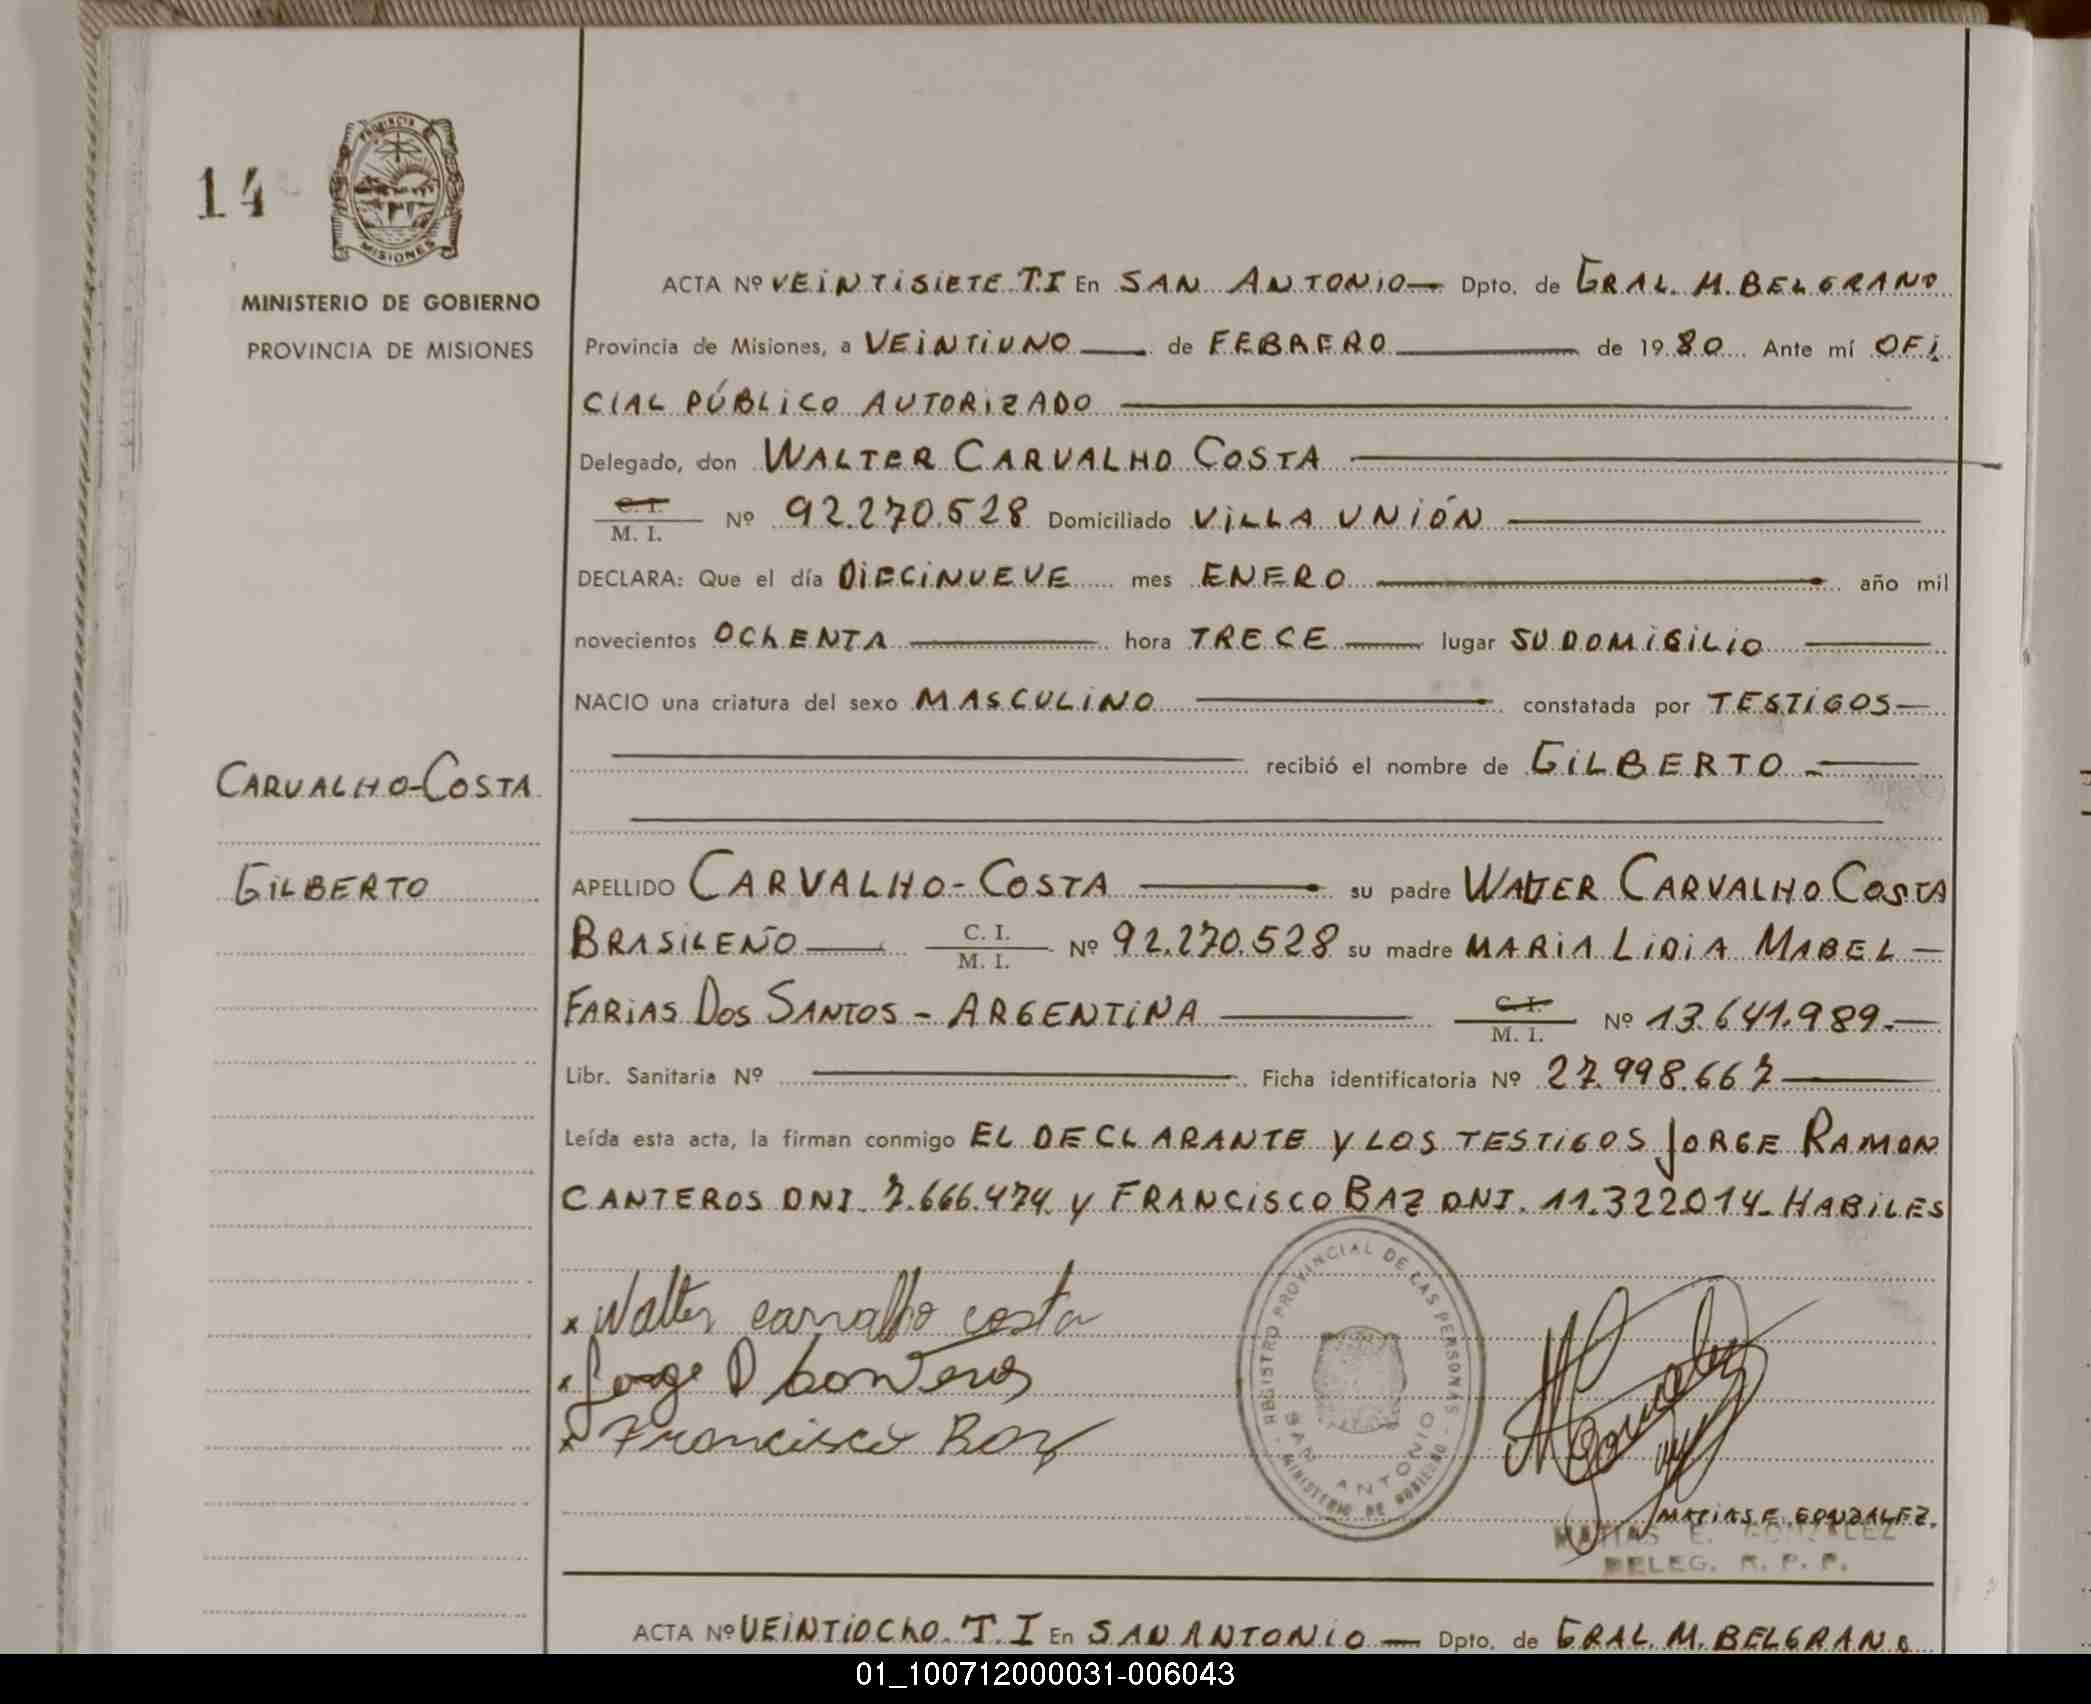 14
PROVINCIA DE
MISIONES
MINISTERIO DE GOBIERNO
PROVINCIA DE MISIONES
ACTA Nº VEINTISIETE T.I En SAN ANTONIO — Dpto. de GRAL. M. BELGRANO
Provincia de Misiones, a VEINTIUNO — de FEBRERO — de 1980 Ante mí OFI
CIAL PÚBLICO AUTORIZADO —
Delegado, don WALTER CARVALHO COSTA —
C. I.
M. I. Nº 92.270.528 Domiciliado VILLA UNIÓN —
DECLARA: Que el día DIECINUEVE mes ENERO — año mil
novecientos OChENTA — hora TRECE — lugar SU DOMICILIO —
NACIO una criatura del sexo MASCULINO — constatada por TESTIGOS —
— recibió el nombre de GILBERTO —
CARVALHO-COSTA
GILBERTO
APELLIDO CARVALHO-COSTA — su padre WALTER CARVALHO COSTA
BRASILEÑO — C. I.
M. I. Nº 92.270.528 su madre MARIA LIDIA MABEL —
FARIAS DOS SANTOS - ARGENTINA — C. I.
M. I. Nº 13.641.989.—
Libr. Sanitaria Nº — Ficha identificatoria Nº 27.998.667 —
Leída esta acta, la firman conmigo EL DECLARANTE y LOS TESTIGOS JORGE RAMON
CANTEROS DNI. 7.666.474. y FRANCISCO BAZ DNI. 11.322.014- HABILES
x Walter carvalho costa
x Jorge Canteros
x Francisco Baz
REGISTRO PROVINCIAL DE LAS PERSONAS
SAN ANTONIO
- MINISTERIO DE GOBIERNO -
MATIAS E. GONZALEZ.
MATIAS E. GONZALEZ
DELEG. R. P. P.
ACTA Nº VEINTIOChO. T. I En SAN ANTONIO — Dpto. de GRAL. M. BELGRANO
01_100712000031-006043